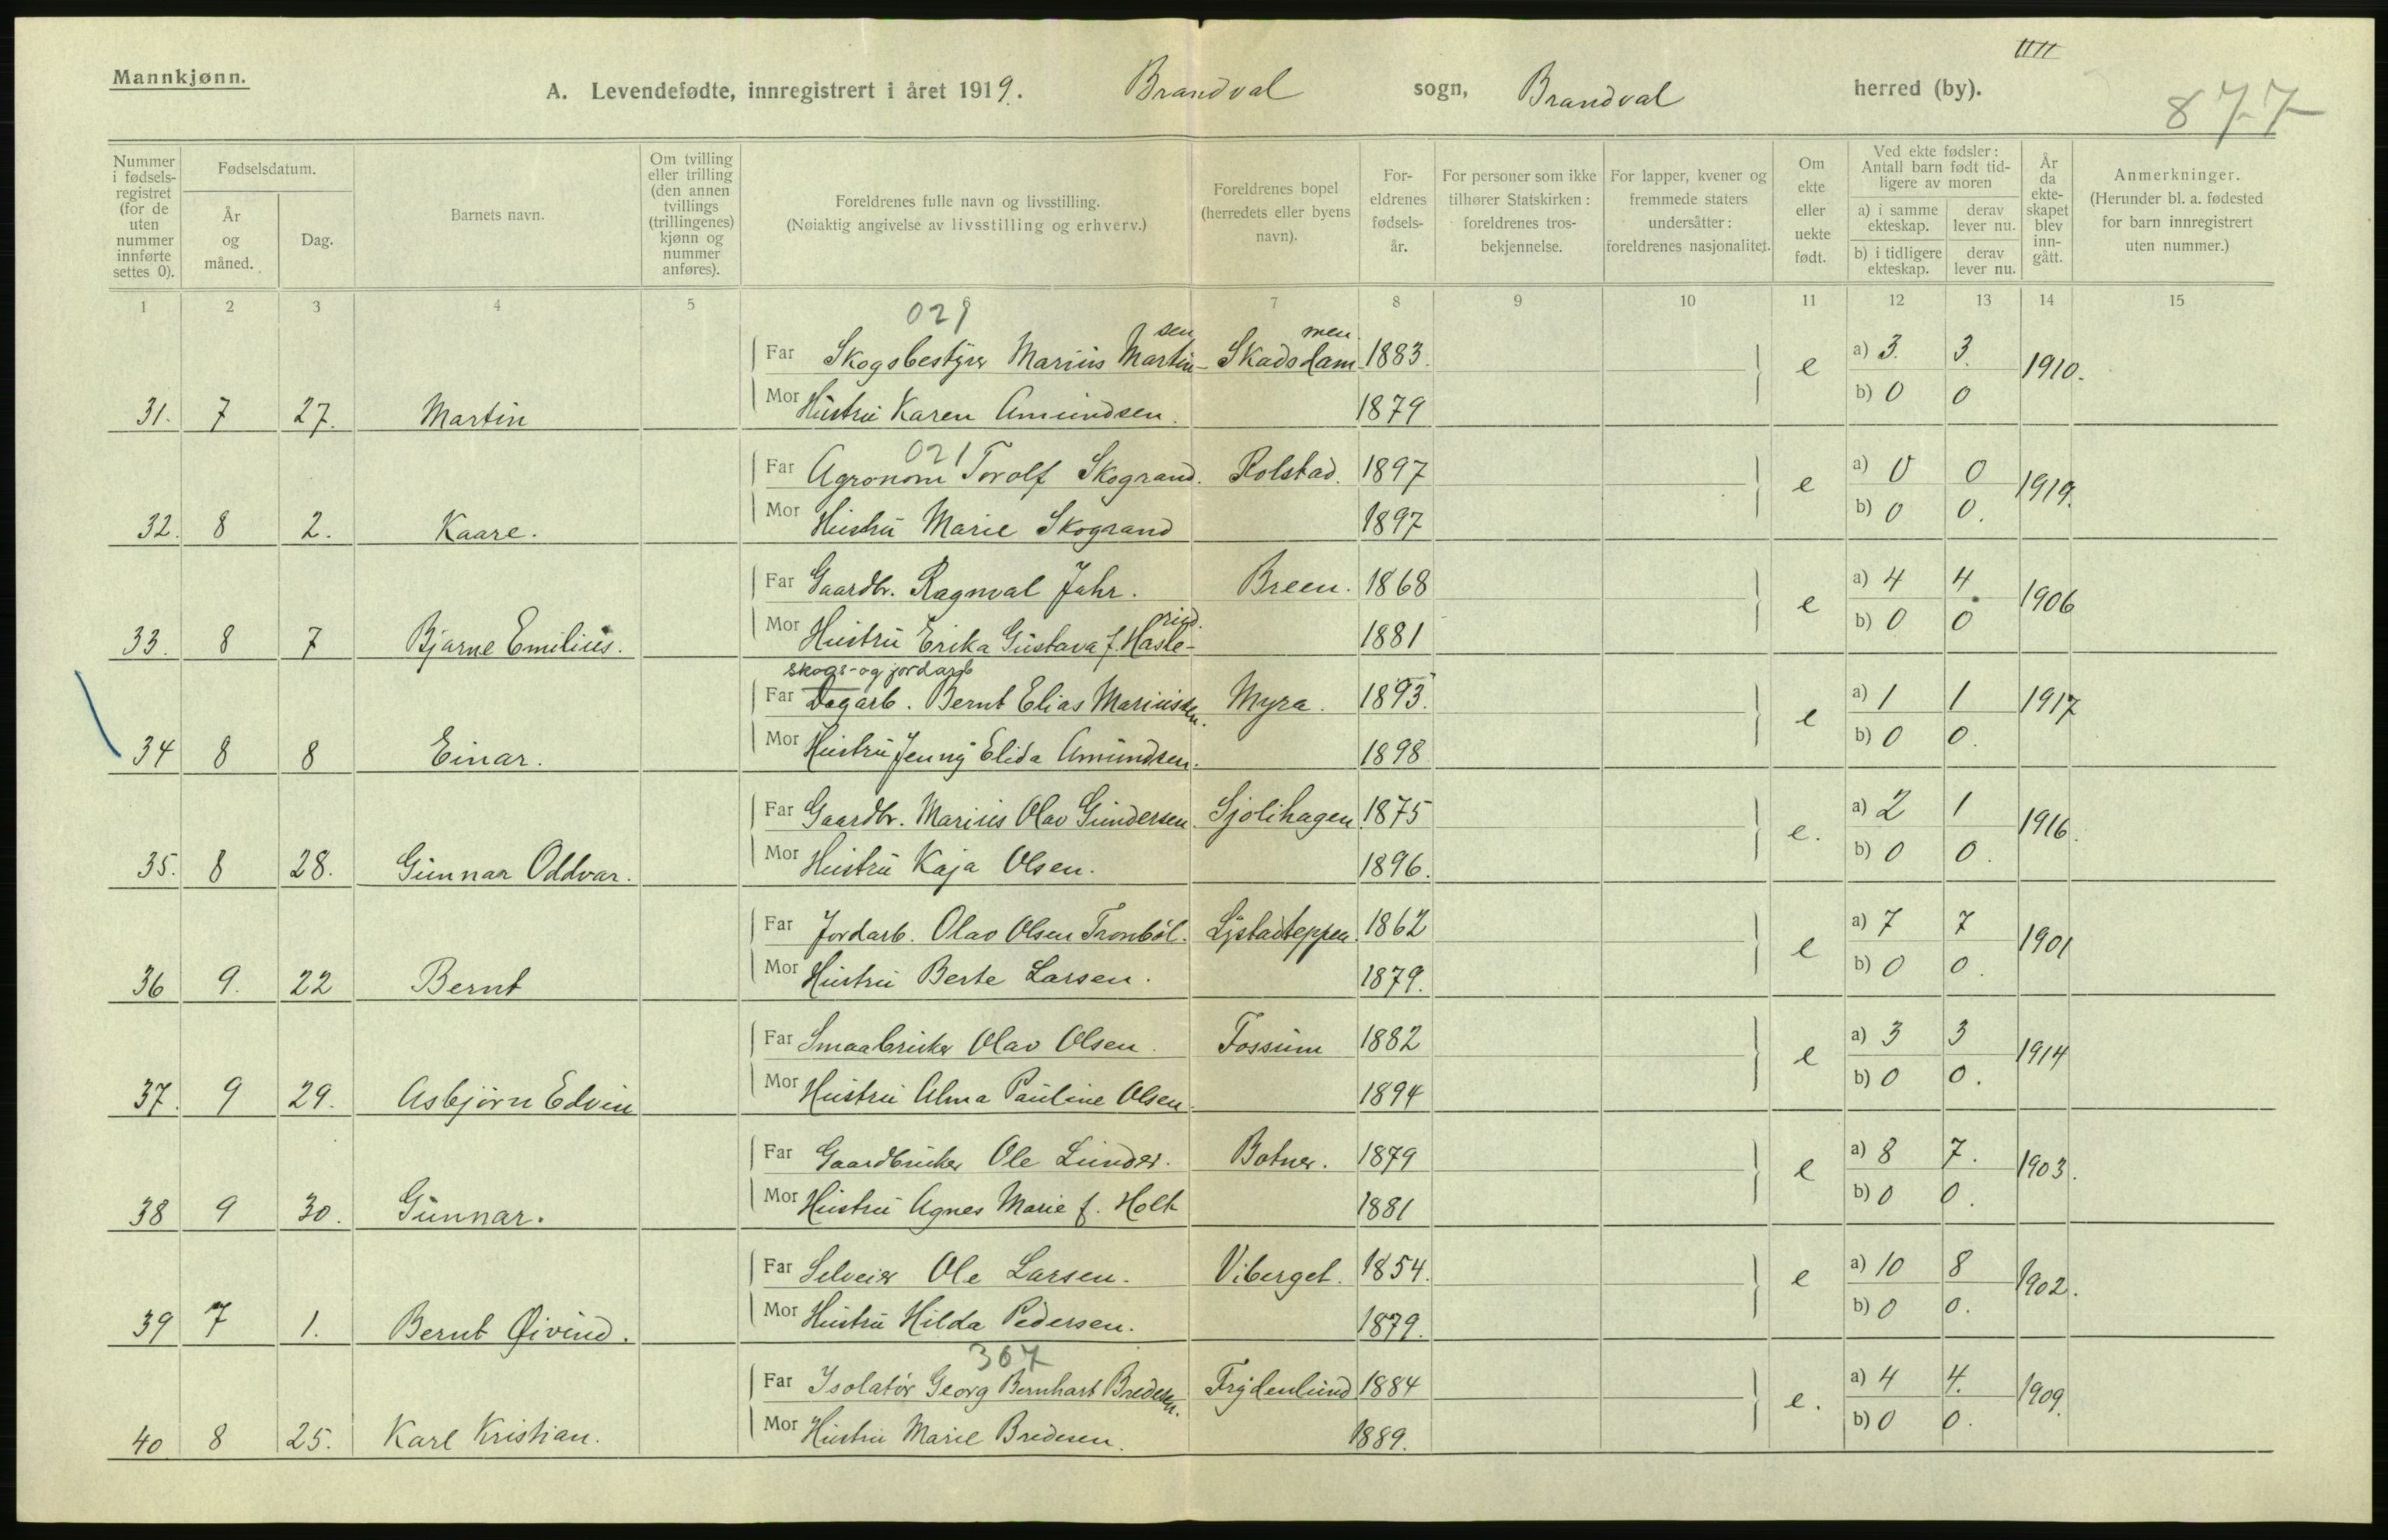 Mannkjønn.
A. Levendefødte, innregistrert i året 1919. Brandval sogn, Brandval herred (by).
877
Nummer i fødsels-registret (for de uten nummer innførte settes 0).
Fødselsdatum.
År og måned.
Dag.
Barnets navn.
Om tvilling eller trilling (den annen tvillings (trillingenes) kjønn og nummer anføres).
Foreldrenes fulle navn og livsstilling.
(Nøiaktig angivelse av livsstilling og erhverv.)
Foreldrenes bopel (herredets eller byens navn).
For-eldrenes fødsels-år.
For personer som ikke tilhører Statskirken: foreldrenes tros-bekjennelse.
For lapper, kvener og fremmede staters undersåtter: foreldrenes nasjonalitet.
Om ekte eller uekte født.
Ved ekte fødsler: Antall barn født tid-ligere av moren
a) i samme ekteskap. derav lever nu.
b) i tidligere ekteskap. derav lever nu.
År da ekte-skapet blev inn-gått.
Anmerkninger.
(Herunder bl. a. fødested for barn innregistrert uten nummer.)
1 2 3 4 5 6 7 8 9 10 11 12 13 14 15
029
sen men
Far Skogsbestyrer Marius Martin- Skadsdam 1883. e a) 3. 3. 1910.
Mor Hustru Karen Amundsen. 1879 b) 0 0
31. 7 27. Martin
021
Far Agronom Torolf Skogrand. Rolstad. 1897 e a) 0 0 1919.
Mor Hustru Marie Skogrand 1897 b) 0 0.
32. 8 2. Kaare.
Far Gaardbr. Ragnval Jahr. Breen. 1868 e a) 4 4 1906
ried.
Mor Hustru Erika Gustava f. Hasle- 1881 b) 0 0
33. 8 7 Bjarne Emilius.
skogs- og jordarb
Far Dagarb. Bernt Elias Mariussen. Myra. 1893. e a) 1 1 1917
Mor Hustru Jenny Elida Amundsen. 1898 b) 0 0.
34 8 8 Einar.
Far Gaardbr. Marius Olav Gundersen Sjolihagen 1875 e. a) 2 1 1916.
Mor Hustru Kaja Olsen. 1896. b) 0 0.
35. 8 28. Gunnar Oddvar.
Far Jordarb. Olav Olsen Tronbøl. Lystadteppen. 1862 e a) 7 7 1901
Mor Hustru Berte Larsen. 1879. b) 0 0.
36 9. 22 Bernt
Far Smaabruker Olav Olsen. Fossum 1882 e a) 3 3 1914
Mor Hustru Alma Pauline Olsen. 1894 b) 0 0.
37. 9 29. Asbjørn Edvin
Far Gaardbruker Ole Lunder. Botner. 1879 e a) 8 7. 1903.
Mor Hustru Agnes Marie f. Holt 1881 b) 0 0.
38 9 30. Gunnar.
Far Selveier Ole Larsen. Viberget. 1854. e a) 10 8 1902.
Mor Hustru Hilda Pedersen. 1879. b) 0 0.
39 7 1. Bernt Øivind.
307
Far Isolatør Georg Bernhart Bredesen. Frydenlund 1884 e. a) 4 4. 1909.
Mor Hustru Marie Bredesen. 1889. b) 0 0.
40. 8 25. Karl Kristian.